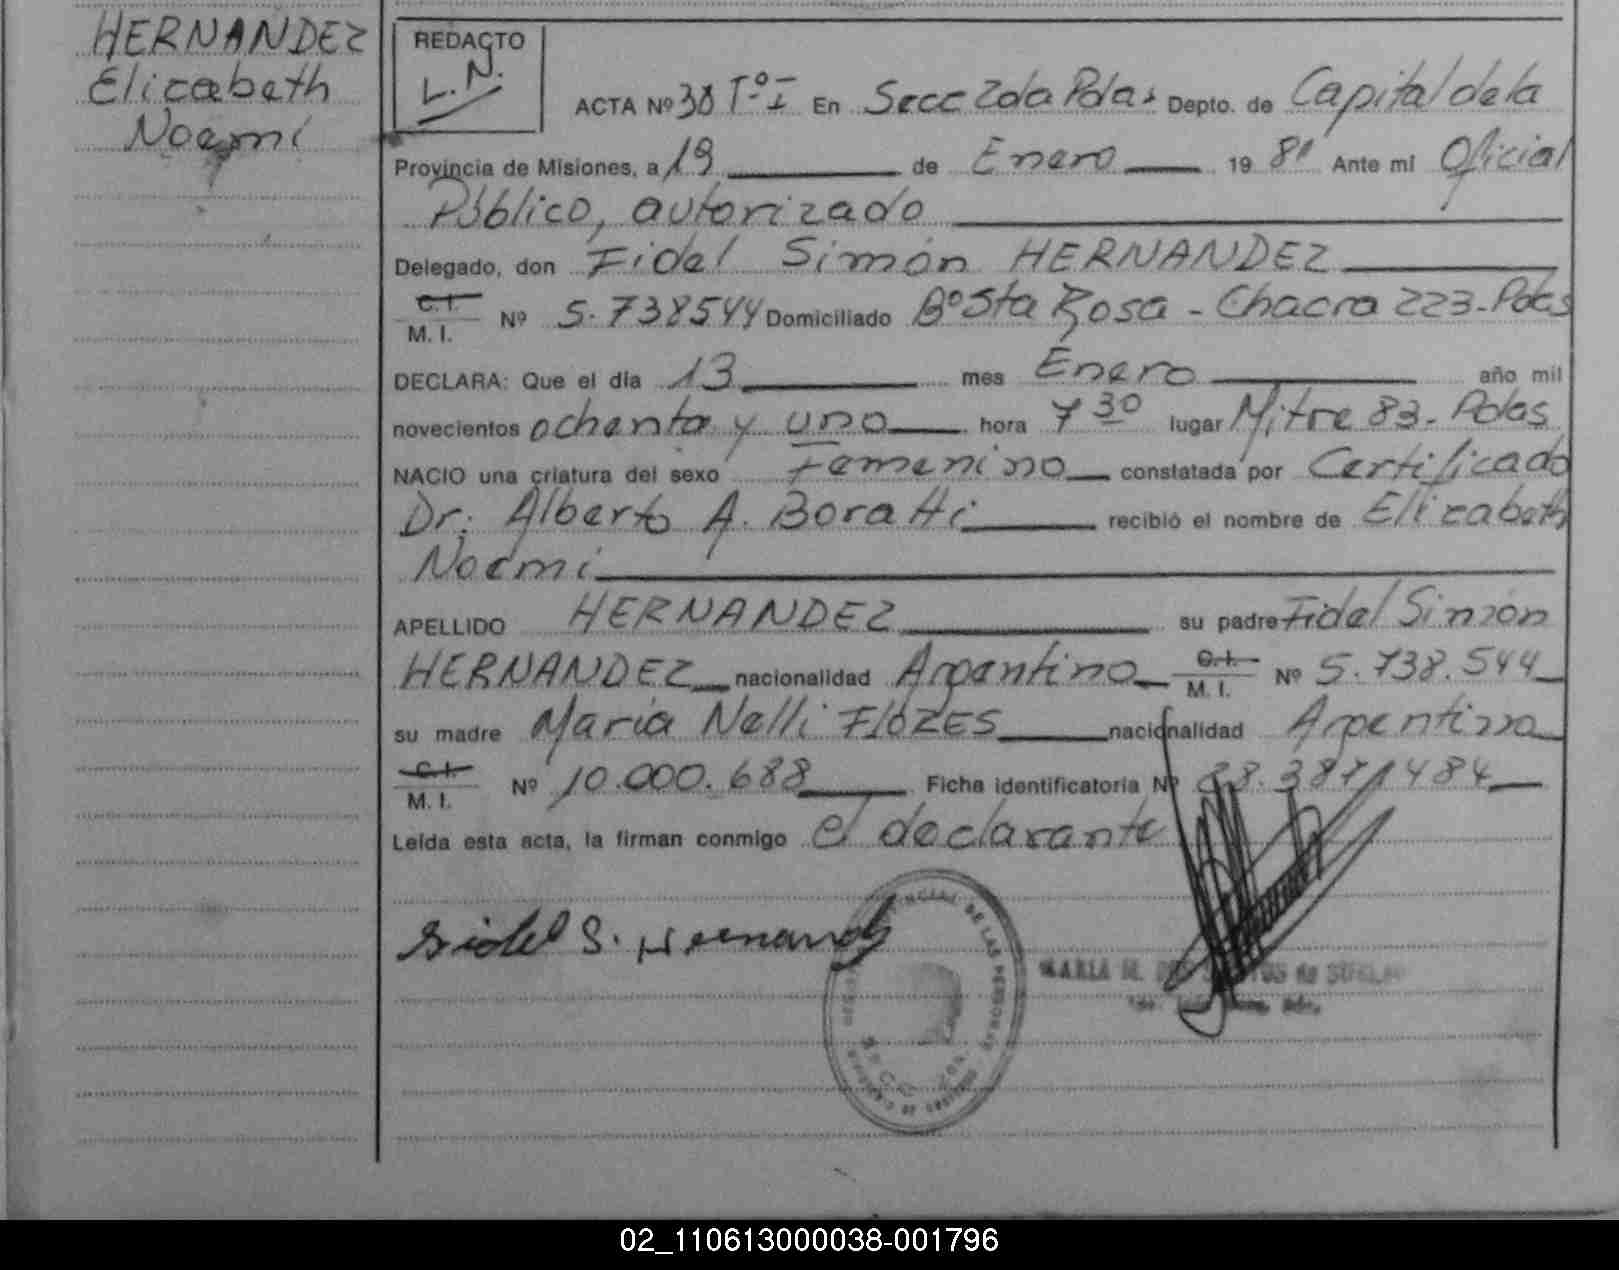 HERNANDEZ
Elizabeth
Noemí
REDACTO
L.N.
ACTA Nº 38 Tº I En Secc 2da Pdas Depto. de Capital de la
Provincia de Misiones, a 19 de Enero 19 81 Ante mi Oficial
Público, autorizado
Delegado, don Fidel Simón HERNANDEZ
C.I.
M. I. Nº 5.738544 Domiciliado Bº Sta Rosa - Chacra 223 - Pdas
DECLARA: Que el día 13 mes Enero año mil
novecientos ochenta y uno hora 7 30 lugar Mitre 83 - Pdas
NACIO una criatura del sexo Femenino constatada por Certificado
Dr. Alberto A. Boratti recibió el nombre de Elizabeth
Noemí
APELLIDO HERNANDEZ su padre Fidel Simón
HERNANDEZ nacionalidad Argentino C.I. M. I. Nº 5.738.544
su madre María Nelli FLORES nacionalidad Argentina
C.I.
M. I. Nº 10.000.688 Ficha identificatoria Nº 28.387.484
Leída esta acta, la firman conmigo el declarante
Fidel S. Hernandez
MARIA M. de
02_110613000038-001796